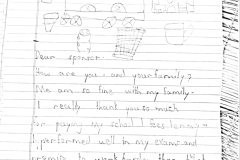 Dear sponsor.
How are you, and your family?
Me am so fine with my family.
I really thank you so much
for paying my school fees
I performed well in my exams and
promise to work harder than this